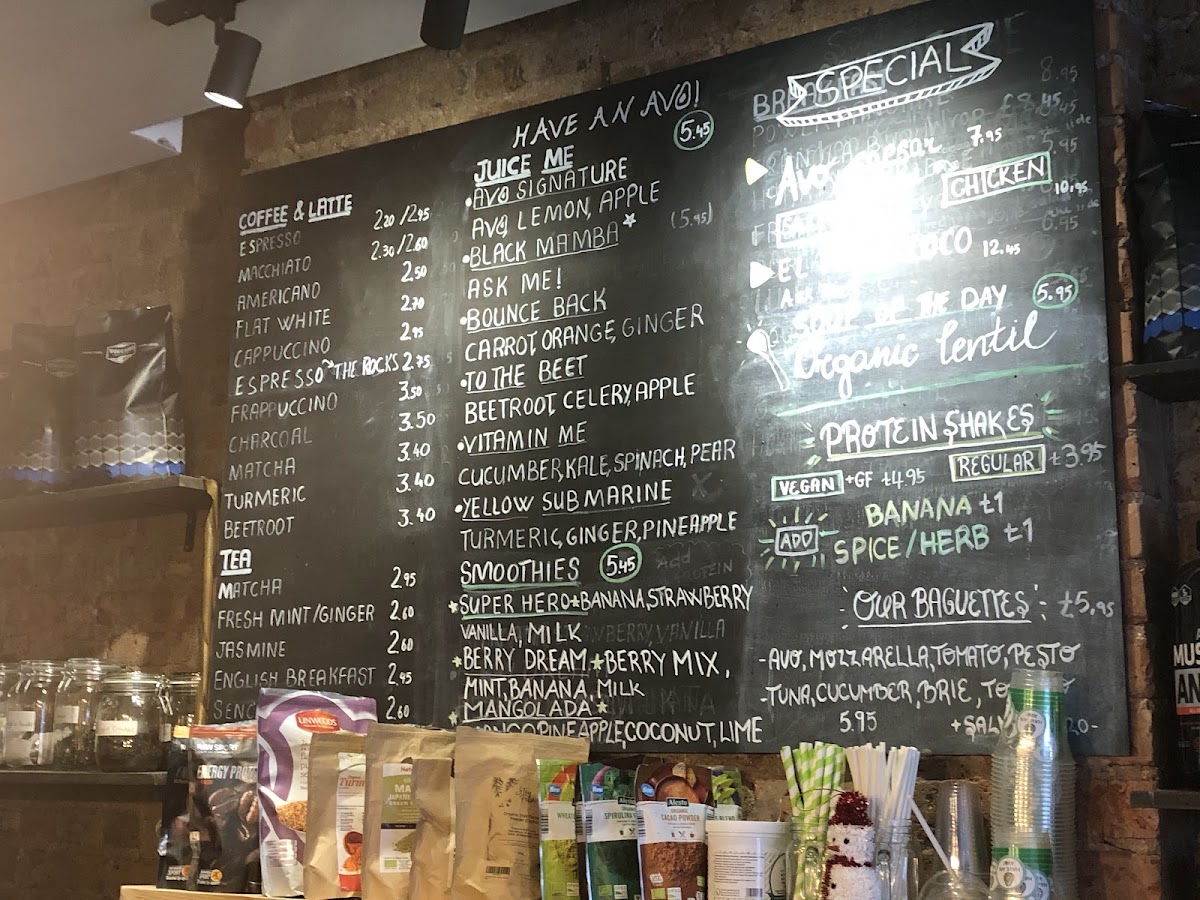 HAVE AN AVO!
5.45
COFFEE & LATTE
ESPRESSO 2.20/2.45
MACCHIATO 2.30/2.60
AMERICANO 2.50
FLAT WHITE 2.70
CAPPUCCINO 2.95
ESPRESSO ~THE ROCKS 2.75
FRAPPUCCINO 3.50
CHARCOAL 3.50
MATCHA 3.40
TURMERIC 3.40
BEETROOT 3.40
TEA
MATCHA 2.95
FRESH MINT/GINGER 2.60
JASMINE 2.60
ENGLISH BREAKFAST 2.45
2.60
JUICE ME
•AVO SIGNATURE
AVO, LEMON, APPLE
•BLACK MAMBA (5.95)
ASK ME!
•BOUNCE BACK
CARROT, ORANGE, GINGER
•TO THE BEET
BEETROOT, CELERY, APPLE
•VITAMIN ME
CUCUMBER, KALE, SPINACH, PEAR
•YELLOW SUBMARINE
TURMERIC, GINGER, PINEAPPLE
SMOOTHIES 5.45
SUPER HERO BANANA, STRAWBERRY
VANILLA, MILK
BERRY DREAM BERRY MIX,
MINT, BANANA, MILK
MANGOLADA
PINEAPPLE, COCONUT, LIME
SPECIAL
7.95
CHICKEN
10.95
12.45
SOUP OF THE DAY 5.95
Organic lentil
PROTEIN SHAKES
VEGAN +GF £4.95 REGULAR £3.95
ADD
BANANA £1
SPICE/HERB £1
'OUR BAGUETTES': £5.95
-AVO, MOZZARELLA, TOMATO, PESTO
-TUNA, CUCUMBER, BRIE,
5.95
LINWOODS
ENERGY
SPIRULINA
Alesto
CACAO POWDER